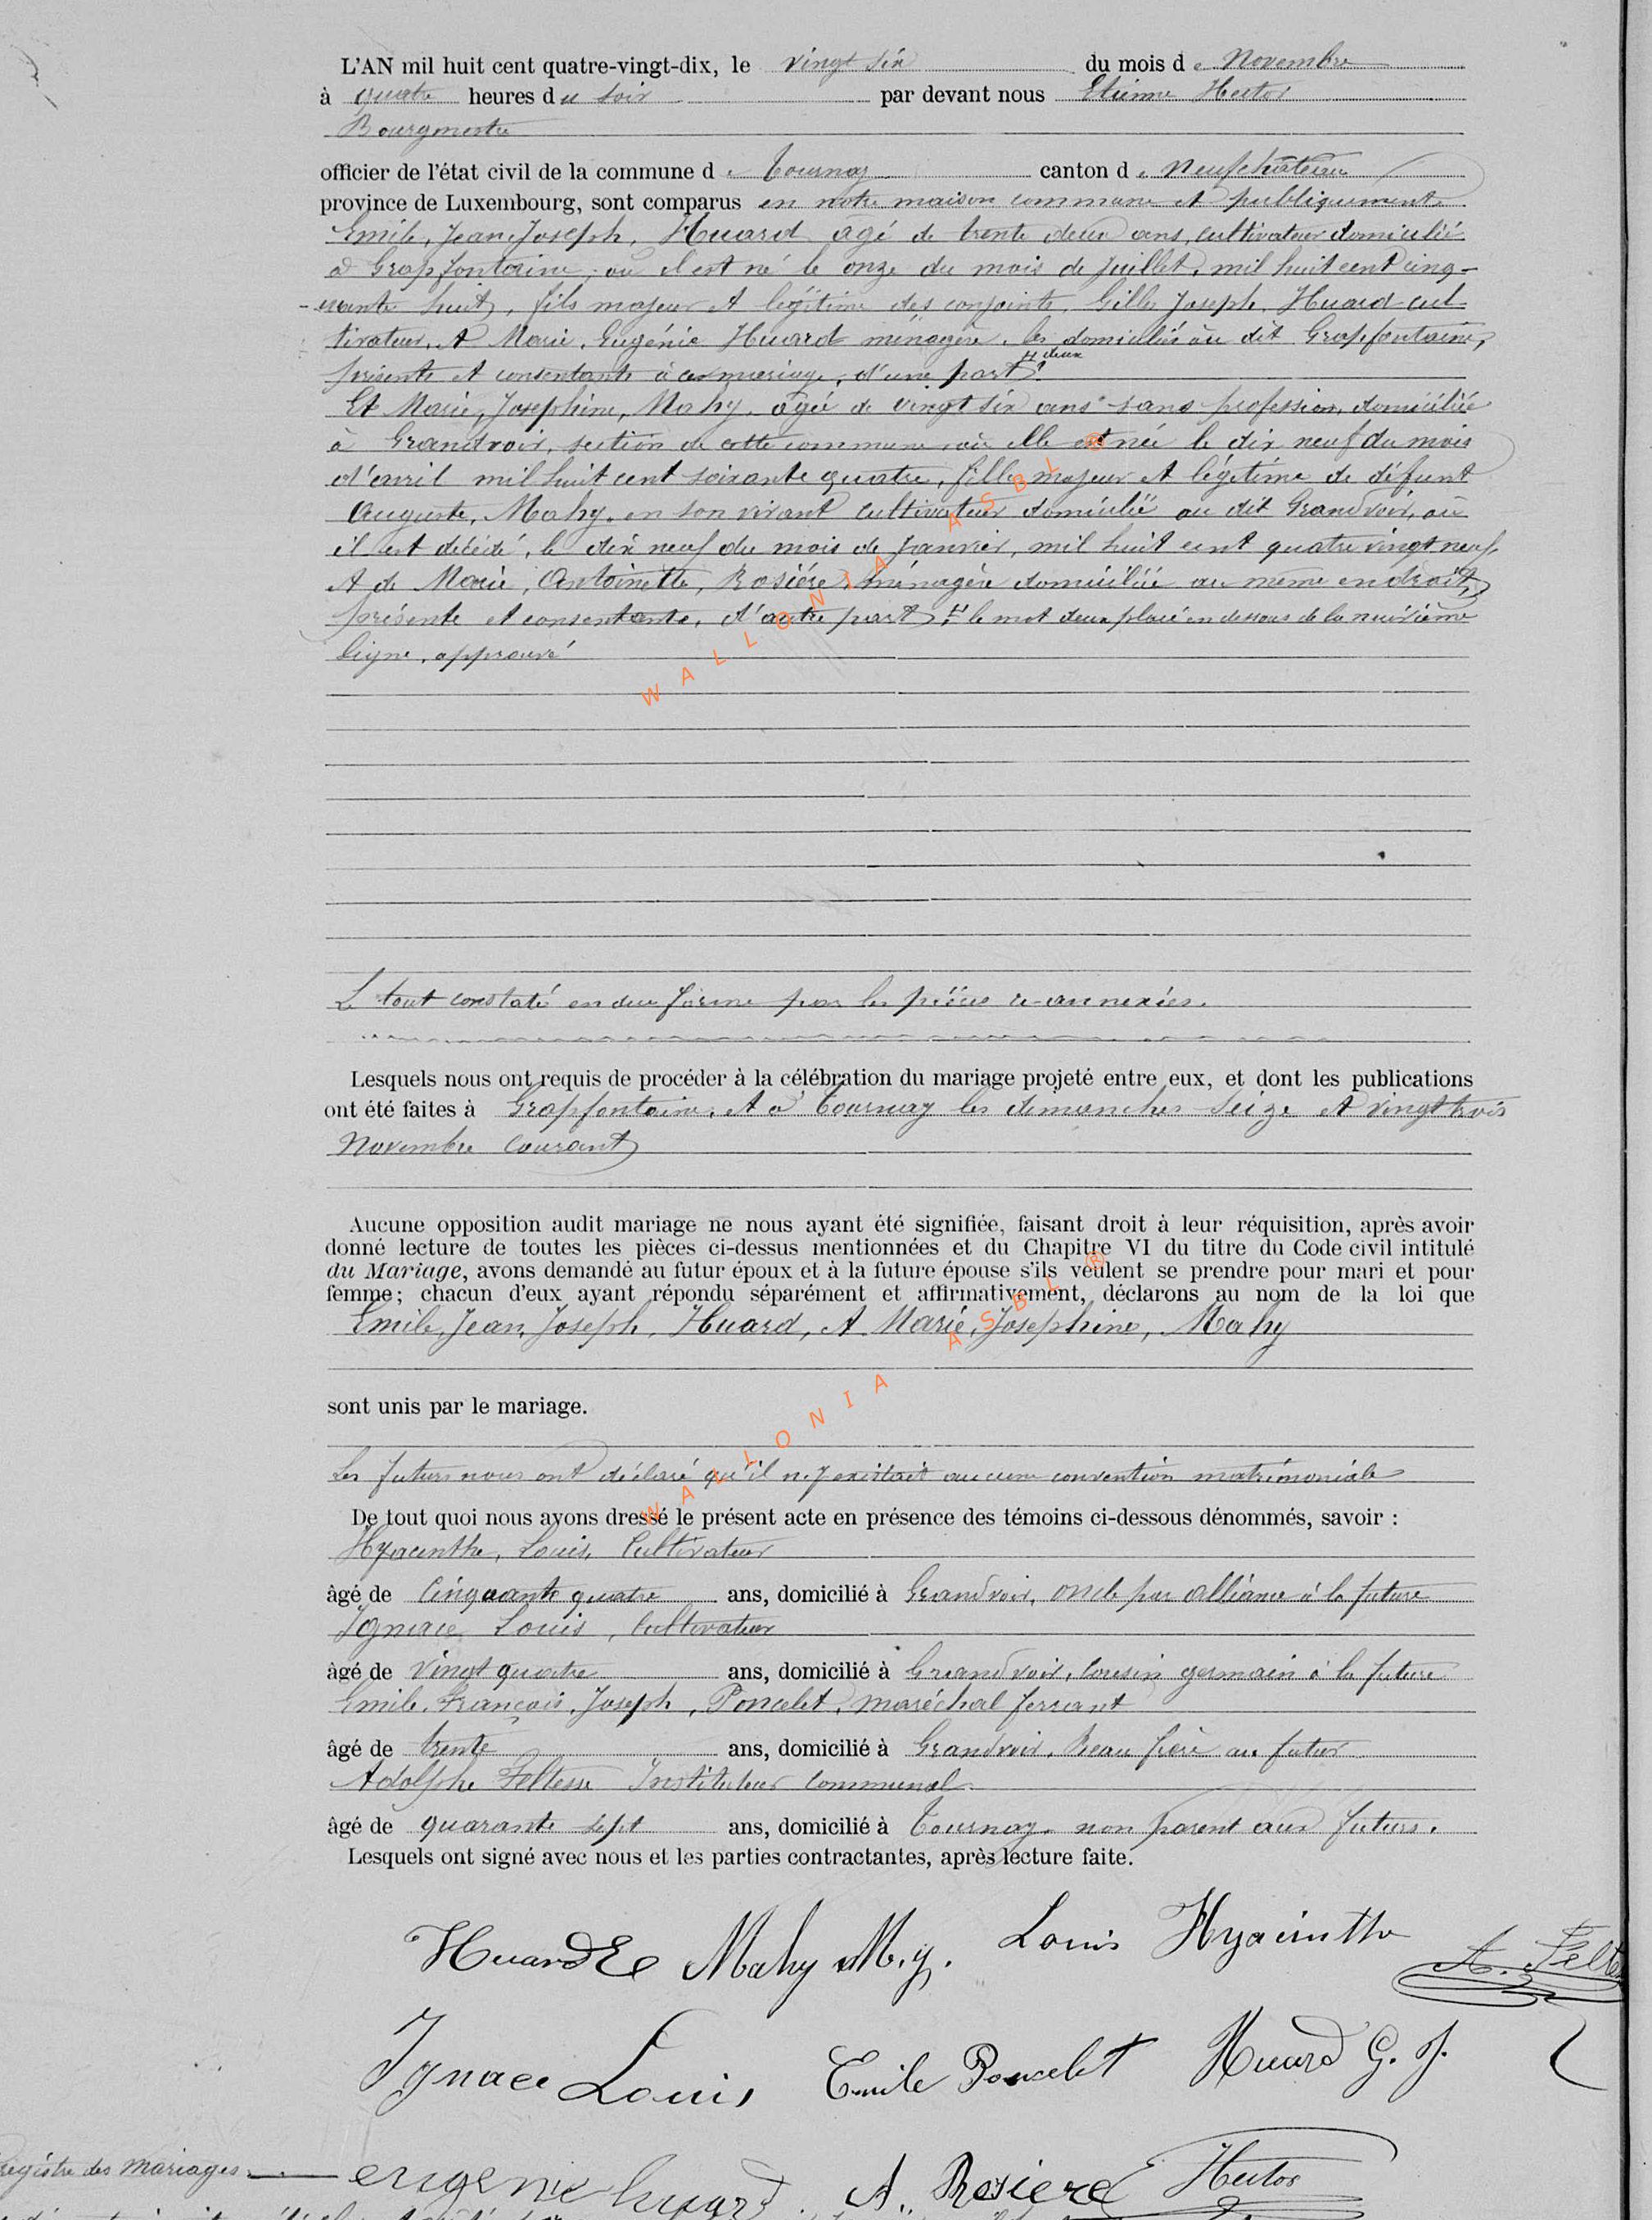 L'AN mil huit cent quatre-vingt-dix, le vingt six du mois de Novembre
à quatre heures du soir par devant nous Etienne Hector
Bourgmestre
officier de l'état civil de la commune de Tournay canton de Neufchâteau
province de Luxembourg, sont comparus en notre maison commune et publiquement
Emile, Jean, Joseph, Huard agé de trente deux ans, cultivateur domicilié
à Grapfontaine, où il est né le onze du mois de Juillet, mil huit cent cinq-
-uante huit, fils majeur et légitime des conjoints, Gilles Joseph, Huard cul-
tivateur, et Marie, Eugénie Huard ménagère, les domiciliés au dit Grapfontaine,
deux
présents et consentants à ce mariage, d'une part.
Et Marie, Joséphine, Mahy, agée de vingt six ans sans profession, domiciliée
à Grandvoir, section de cette commune où elle est née le dix neuf du mois
d'avril mil huit cent soixante quatre, fille majeur et légitime de défunt
Auguste, Mahy, en son vivant cultivateur domicilié au dit Grandvoir, où
il est décédé, le dix neuf du mois de Janvier, mil huit cent quatre vingt neuf,
et de Marie, Antoinette, Rosière, ménagère domiciliée au même endroit,
présente et consentante, d'autre part, le mot deux placé en dessous de la neuvième
ligne, approuvé
Le tout constaté en due forme par les pièces ci-annexées.
Lesquels nous ont requis de procéder à la célébration du mariage projeté entre eux, et dont les publications
ont été faites à Grapfontaine, et à Tournay les dimanches seize et vingt trois
Novembre courant
Aucune opposition audit mariage ne nous ayant été signifiée, faisant droit à leur réquisition, après avoir
donné lecture de toutes les pièces ci-dessus mentionnées et du Chapitre VI du titre du Code civil intitulé
du Mariage, avons demandé au futur époux et à la future épouse s'ils veulent se prendre pour mari et pour
femme; chacun d'eux ayant répondu séparément et affirmativement, déclarons au nom de la loi que
Emile, Jean, Joseph, Huard, et Marie, Joséphine, Mahy
sont unis par le mariage.
Les futurs nous ont déclaré qu'il n'y existait aucune convention matrimoniale
De tout quoi nous avons dressé le présent acte en présence des témoins ci-dessous dénommés, savoir :
Hyacinthe, Louis, Cultivateur
âgé de Cinquante quatre ans, domicilié à Grandvoir, oncle par alliance à la future
Ignace Louis, Cultivateur
âgé de Vingt quatre ans, domicilié à Grandvoir, Cousin germain à la future
Emile, François, Joseph, Poncelet, maréchal ferrant
âgé de trente ans, domicilié à Grandvoir, Beau frère au futur
Adolphe Feltesse Instituteur Communal
âgé de quarante sept ans, domicilié à Tournay, non parent aux futurs.
Lesquels ont signé avec nous et les parties contractantes, après lecture faite.
Huard E Mahy M.j. Louis Hyacinthe A. Felte
Ignace Louis Emile Poncelet Huard G. J.
registre des mariages eugenie huard A. Rosiere Hector
WALLONIA ASBL ®
WALLONIA ASBL ®